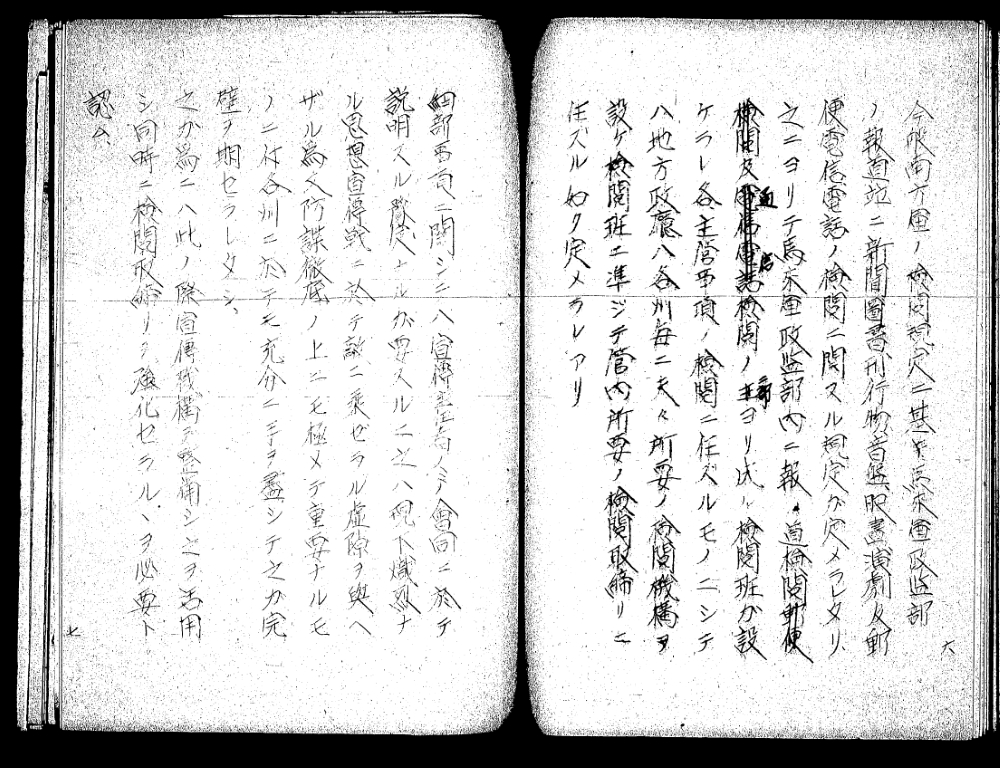 今般南方軍ノ檢閲規定ニ基キ馬來軍政監部
ノ報道竝ニ新聞圖書刊行物音盤映畫演劇及郵
便電信電話ノ檢閲ニ関スル規定ガ定メラレタリ
之ニヨリテ馬來軍政監部内ニ報道檢閲郵便
檢閲及電信電話檢閲ノ ヨリ成ル檢閲班ガ設
ケラレ各主管事項ノ檢閲ニ任ズルモノニシテ
ハ地方政廳ハ各州毎ニ夫々所要ノ檢閲機構ヲ
設ケ檢閲班ニ準ジテ管内所要ノ檢閲取締リニ
任ズル如ク定メラレアリ
六
細部事項ニ関シテハ宣傳 ノミノ會同ニ於テ
説明スル豫定ナルガ要スルニ之ハ現下熾烈ナ
ル思想宣傳戦ニ於テ敵ニ乘ゼラル虚隙ヲ與ヘ
ザル為又防諜徹底ノ上ニモ極メテ重要ナルモ
ノニ付各州ニ於テモ充分ニ手ヲ盡シテ之ガ完
璧ヲ期セラレタシ、
之ガ為ニハ此ノ際宣傳機構ヲ整備シ之ヲ活用
シ同時ニ檢閲取締リヲ強化セラルヽヲ必要ト
認ム、
七